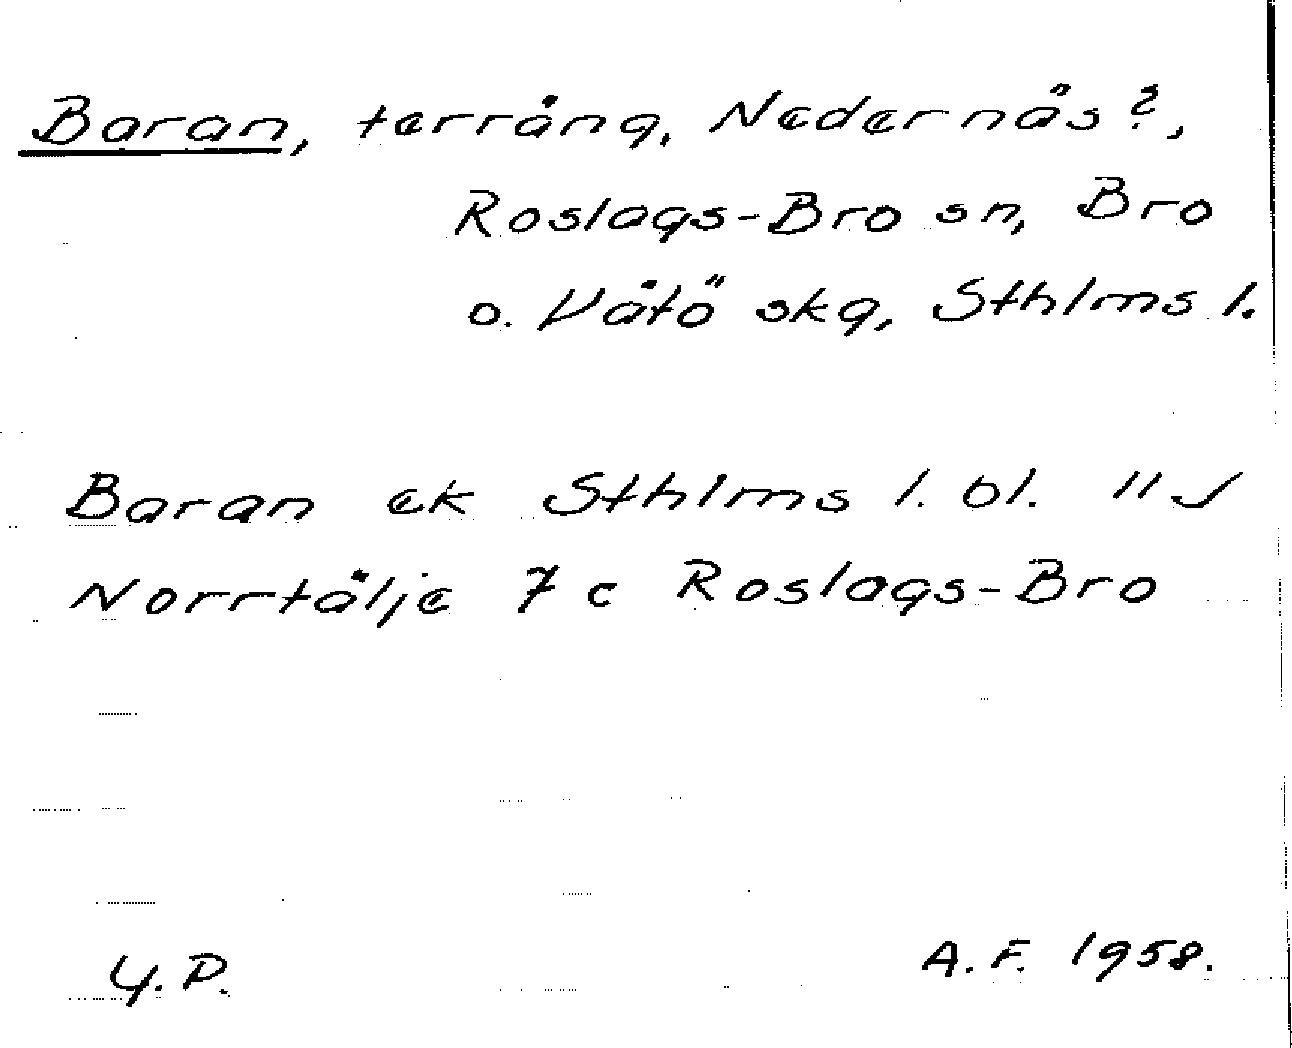 Baran, terräng, Nedernäs?,
Roslags-Bro sn, Bro
o. Vätö skg, Sthlms l.
Baran ek Sthlms l. bl. "
Norrtälje 7 c Roslags-Bro
Y.P. A.F. 1958.